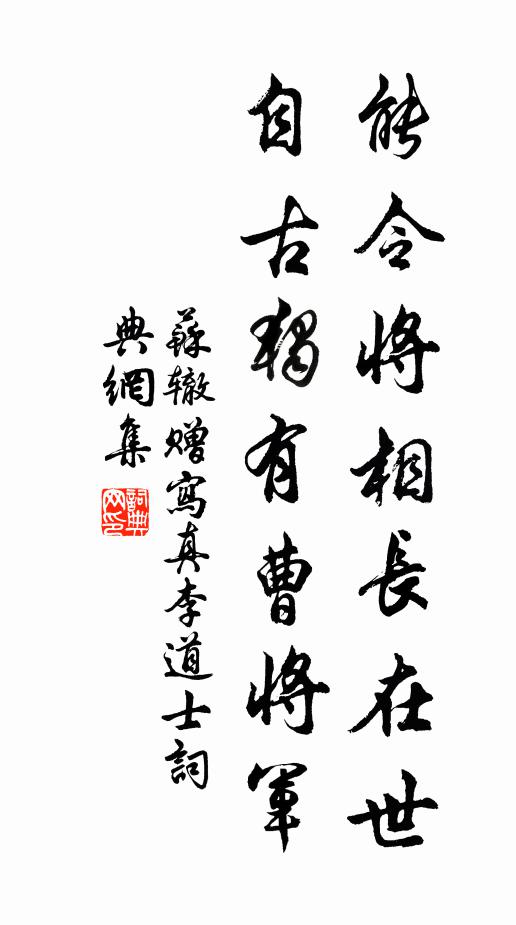 能令將相長在世
自古獨有曹將軍
蘇轍贈寫真李道士詞
典網集
詞典
网印